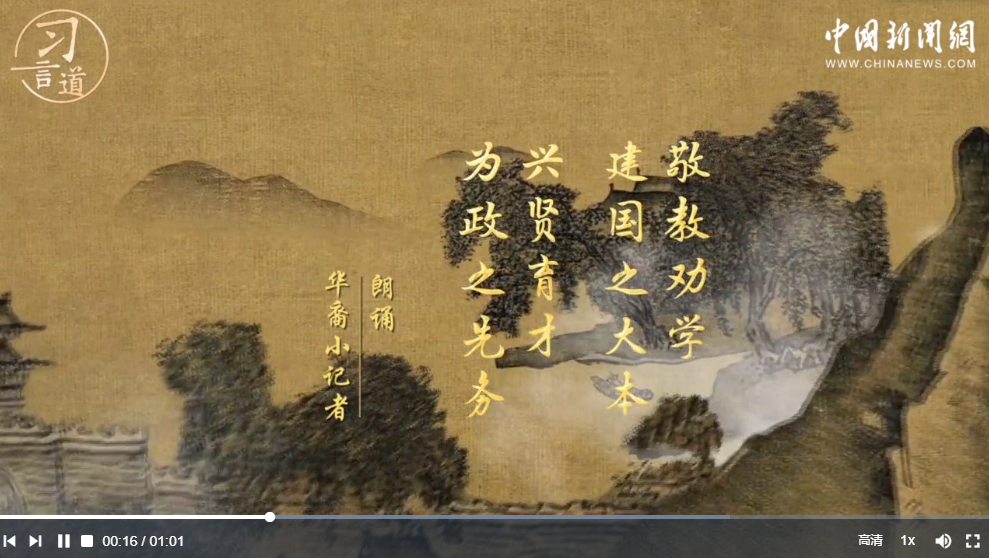 习
言道
中國新聞網
WWW.CHINANEWS.COM
敬教劝学
建国之大本
兴贤育才
为政之先务
朗诵
华裔小记者
00:16 / 01:01
高清
1x